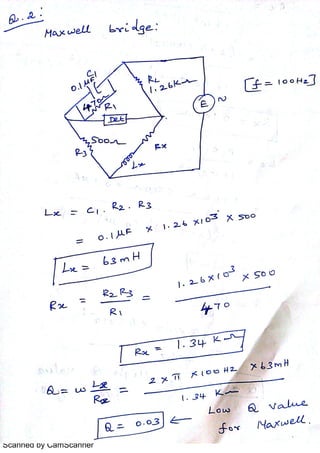 Q.2:
Maxwell bridge:
C1
0.1μF
R2
1.26K Ω
470Ω R1
E ~
[f = 100Hz]
Det
500Ω
R3
Rx
Lx
Lx = C1 . R2 . R3
= 0.1μF × 1.26 ×10³ × 500
Lx = 63mH
Rx = R2 R3 / R1 = 1.26×10³ × 500 / 470
Rx = 1.34 KΩ
Q = ω Lx / Rx = 2 × π × 100 Hz × 63mH / 1.34 KΩ
Q = 0.03 ← Low Q value
for Maxwell.
Scanned by CamScanner